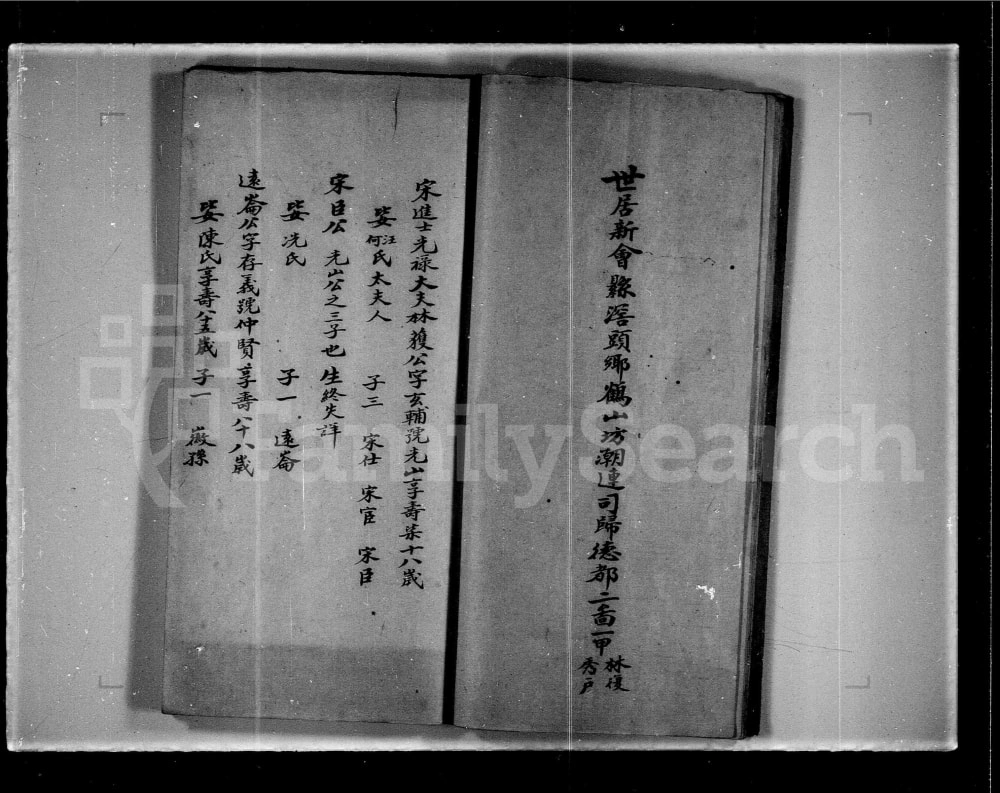 世居新會縣滘頭鄉鶴山坊潮連司歸德都二啚一甲林復秀户
宋進士光禄大夫林𫉬公字玄輔號光山享壽柒十八歲
娶汪何氏太夫人 子三 宋仕 宋宦 宋臣
宋臣公 光山公之三子也 生終失詳
娶冼氏 子一 遠崙
遠崙公字存義號仲賢享壽八十八歲
娶陳氏享壽八十五歲 子一 嶶孫
FamilySearch